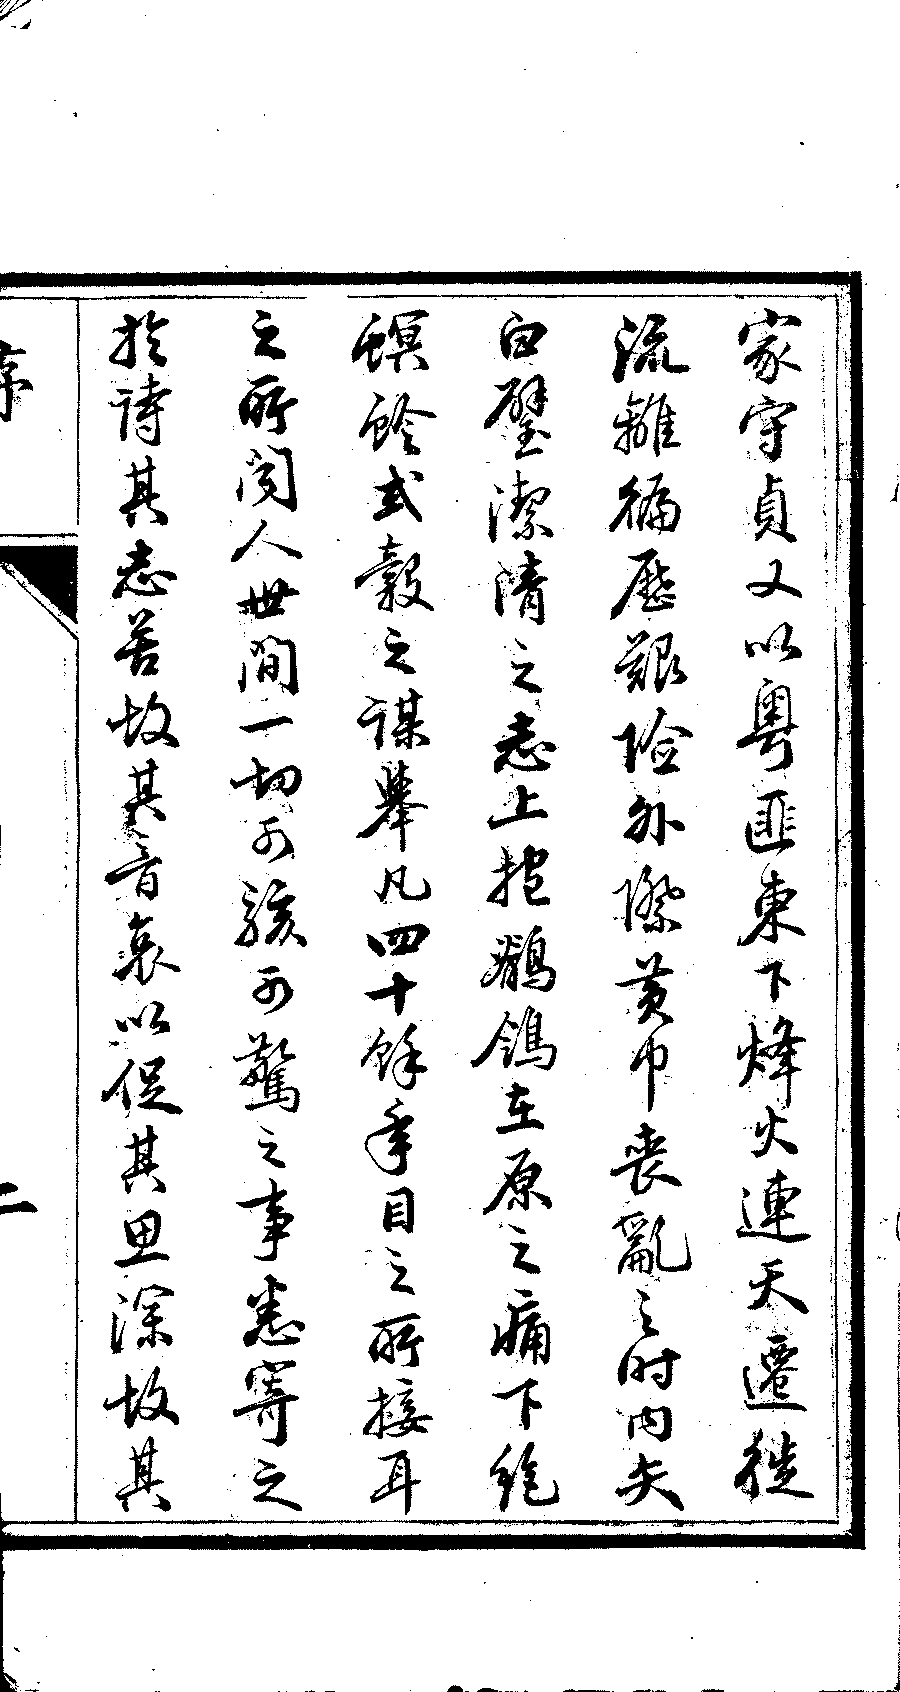 家守貞又以粵匪東下烽火連天遷徙
流離徧歷艱險外際黃巾喪亂之時內失
白璧潔清之志上抱鶺鴒在原之痛下絕
螟蛉式穀之謀舉凡四十餘年目之所接耳
之所聞人世間一切可駭可驚之事悉寄之
於詩其志苦故其音哀以促其思深故其
序
二